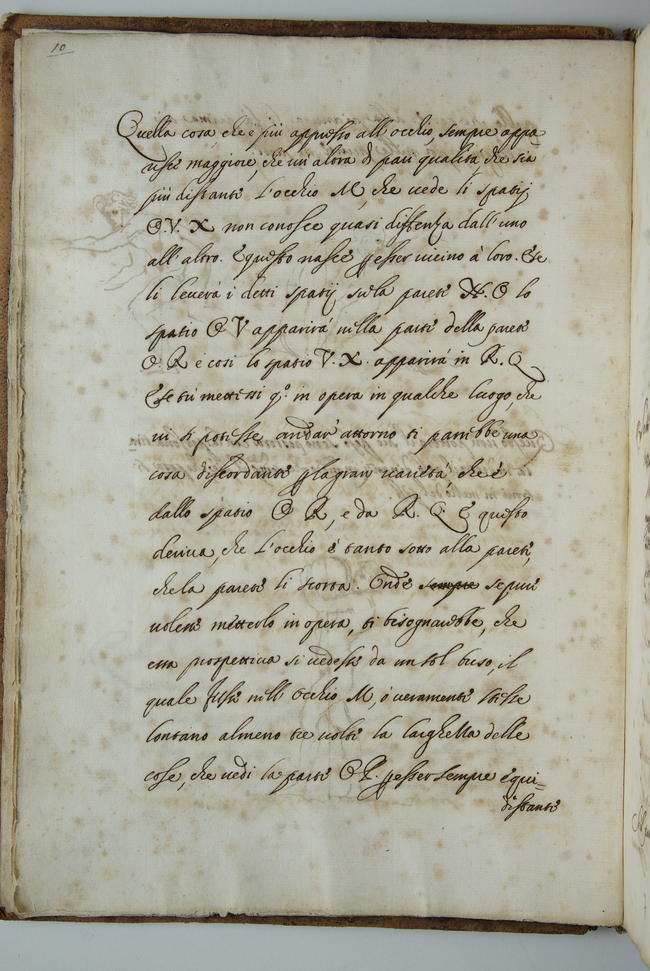 10
Quella cosa che è più appresso all'occhio, sempre appa-
risce maggiore, che un'altra di pari qualità, che sia
più distante. L'occhio M, che vede li spatij
O. V. X non conosce quasi differenza dall'uno
all'altro. E questo nasce p esser vicino à loro. E se
li leverà i detti spatij sula parete N. O lo
spatio O V apparirà nella parte della parete
O. R e così lo spatio V. X. apparirà in R. Q
E se tu mettessi q.o in opera in qualche luogo, che
vi si potesse andar' attorno ti parrebbe una
cosa discordante p la gran varietà, che è
dallo spatio O R, e da R. Q. E questo
deriva, che l'occhio è tanto sotto alla parete,
che la parete li scorta. Onde sempre se pur
volessi metterlo in opera, ti bisognarebbe, che
essa prospettiva si vedesse da un sol buso, il
quale fusse nell'occhio M, ò veramente stesse
lontano almeno tre volte la larghezza delle
cose, che vedi la parte O R. p esser sempre equi-
distante